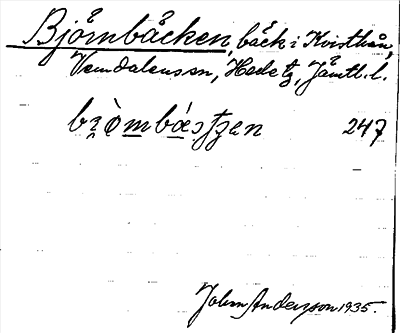 Björnbäcken, bäck i Kvisthån,
Vemdalens sn, Hede tg, Jämtl. l.
bɿòmbástʒen 247
John Andersson 1935.